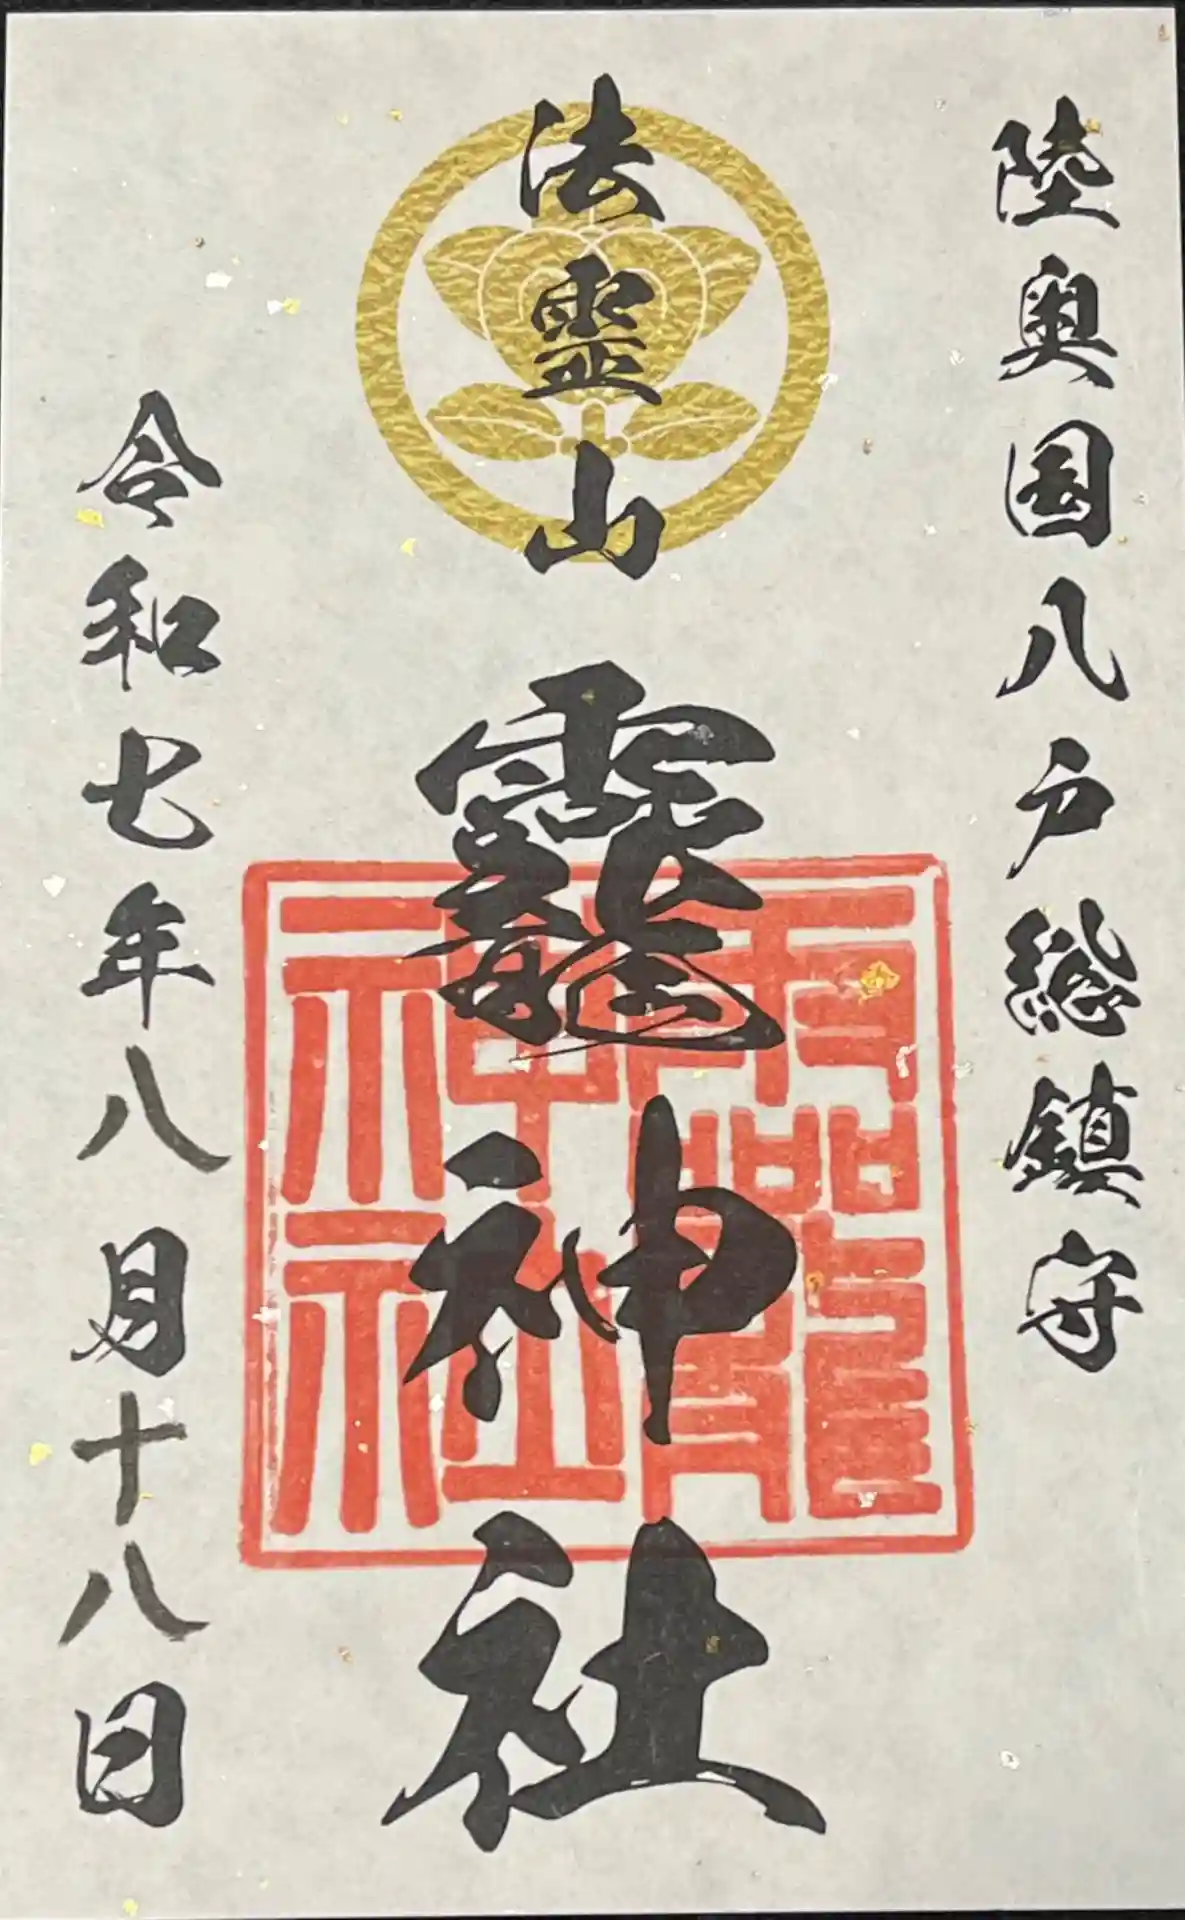 陸奥国八戸総鎮守
法霊山
龗神社
令和七年八月十八日
龗
神社